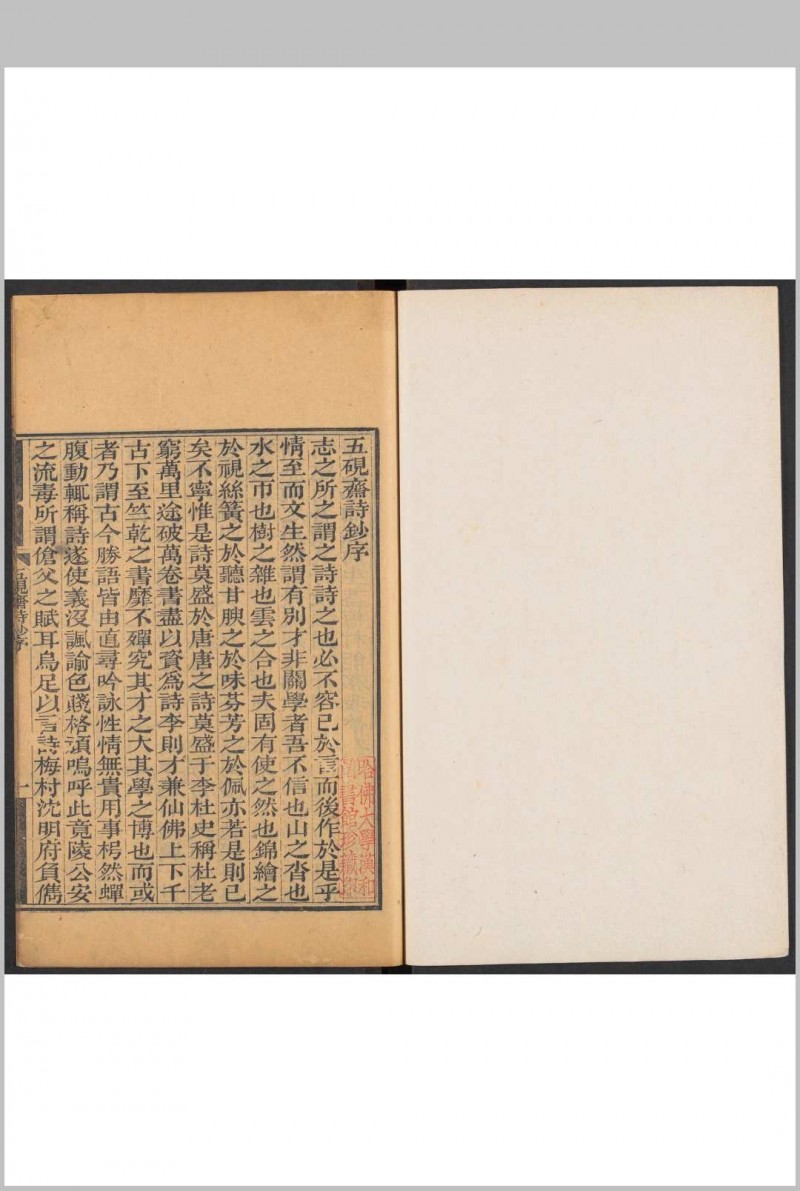 五硯齋詩鈔序
志之所之謂之詩詩之也必不容已於言而後作於是乎
情至而文生然謂有別才非關學者吾不信也山之沓也
水之帀也樹之雜也雲之合也夫固有使之然也錦繪之
於視絲簧之於聽甘腴之於味芬芳之於佩亦若是則已
矣不寧惟是詩莫盛於唐唐之詩莫盛于李杜史稱杜老
窮萬里途破萬卷書盡以資爲詩李則才兼仙佛上下千
古下至竺乾之書靡不殫究其才之大其學之博也而或
者乃謂古今勝語皆由直尋吟詠性情無貴用事枵然蟬
腹動輒稱詩遂使義沒諷諭色羢格頹嗚呼此竟陵公安
之流毒所謂傖父之賦耳烏足以言詩梅村沈明府負儁
五硯齋詩鈔序
一
哈佛大學漢和
圖書館珍藏印